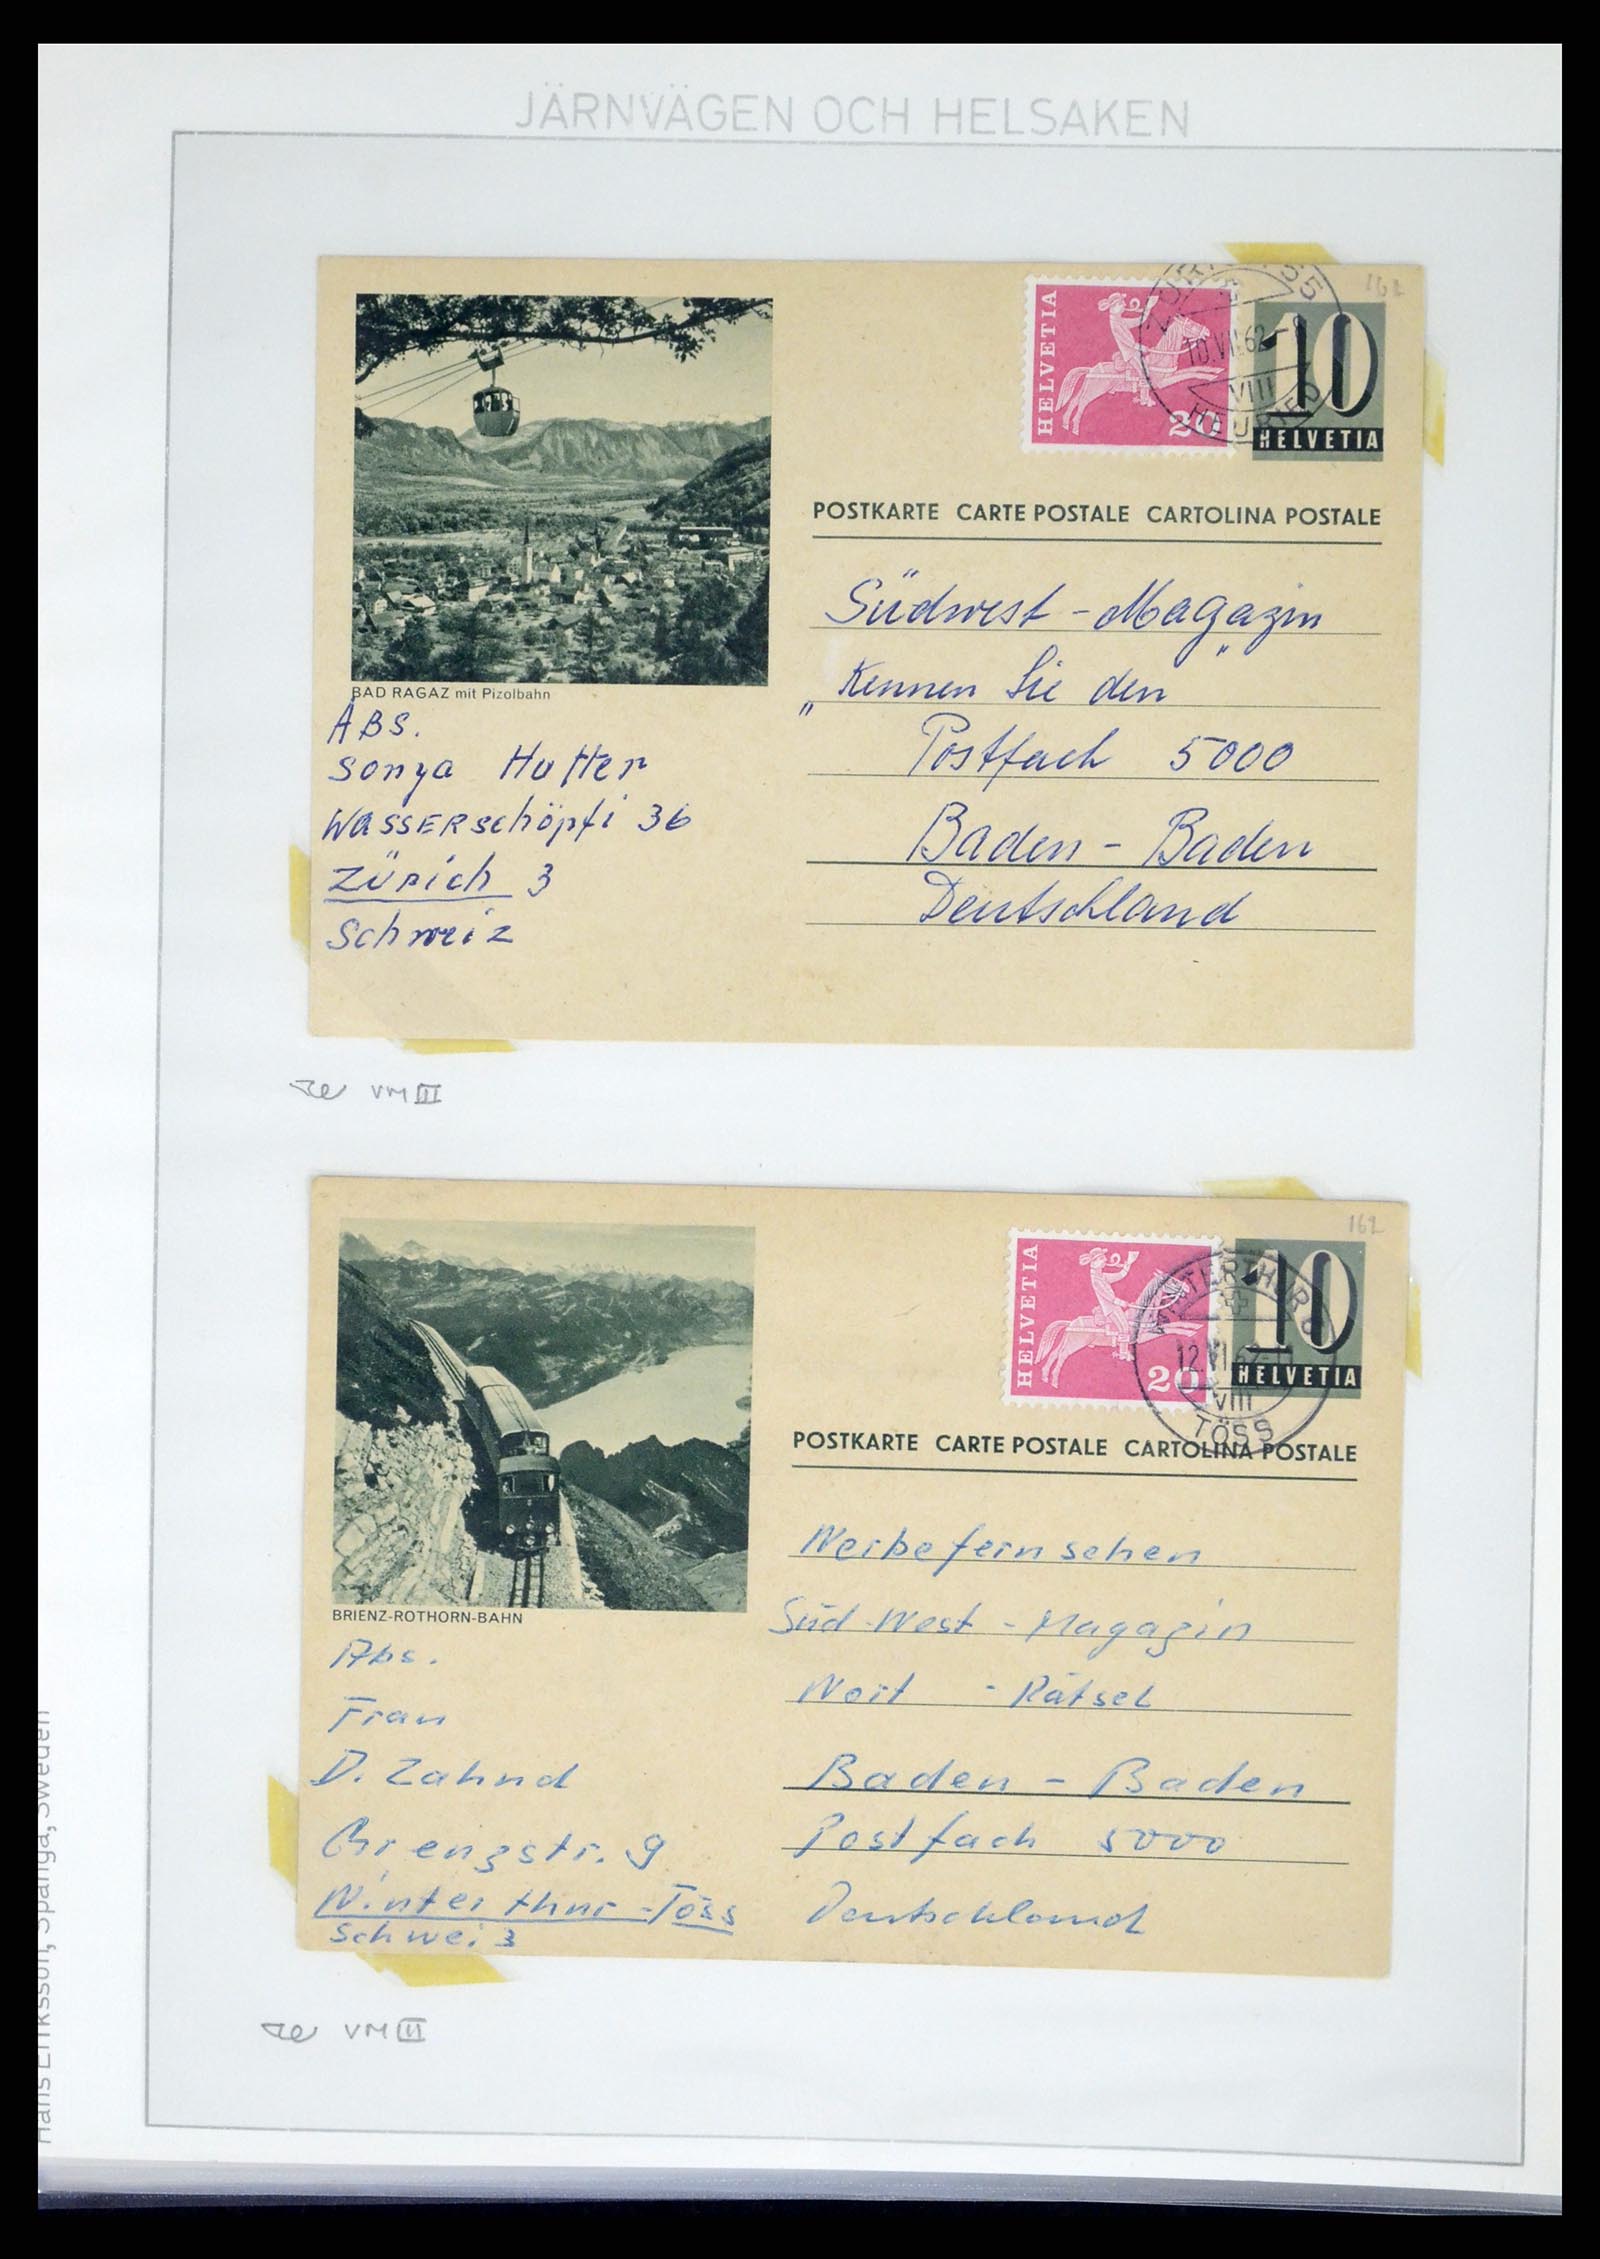 JÄRNVÄGEN OCH HELSAKEN
162
HELVETIA
20
10.VII.62
VIII
HEURIED
10
HELVETIA
POSTKARTE CARTE POSTALE CARTOLINA POSTALE
BAD RAGAZ mit Pizolbahn
ABS.
Sonya Hutter
Wasserschöpfi 36
Zürich 3
Schweiz
Südwest-Magazin
„Kennen Sie den"
Postfach 5000
Baden-Baden
Deutschland
VM III
162
HELVETIA
20
WINTERTHUR 8
VIII
TÖSS
10
HELVETIA
POSTKARTE CARTE POSTALE CARTOLINA POSTALE
BRIENZ-ROTHORN-BAHN
Abs.
Frau
D. Zahnd
Grenzstr. 9
Winterthur-Töss
Schweiz
Werbefernsehen
Süd-West-Magazin
Wort - Rätsel
Baden-Baden
Postfach 5000
Deutschland
VM III
Hans Eriksson, Spånga, Sweden